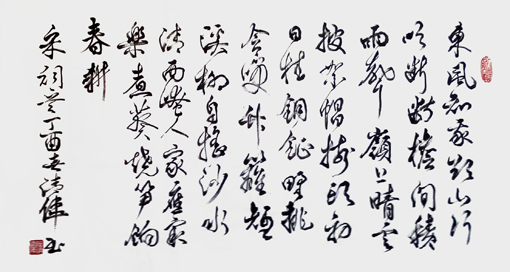 東風知我欲山行
吹斷檐間積
雨聲嶺上晴雲
披絮帽樹頭初
日挂銅鉦野桃
含笑竹籬短
溪柳自搖沙水
清西崦人家應最
樂煮葵燒笋餉
春耕
宋詞丁酉春